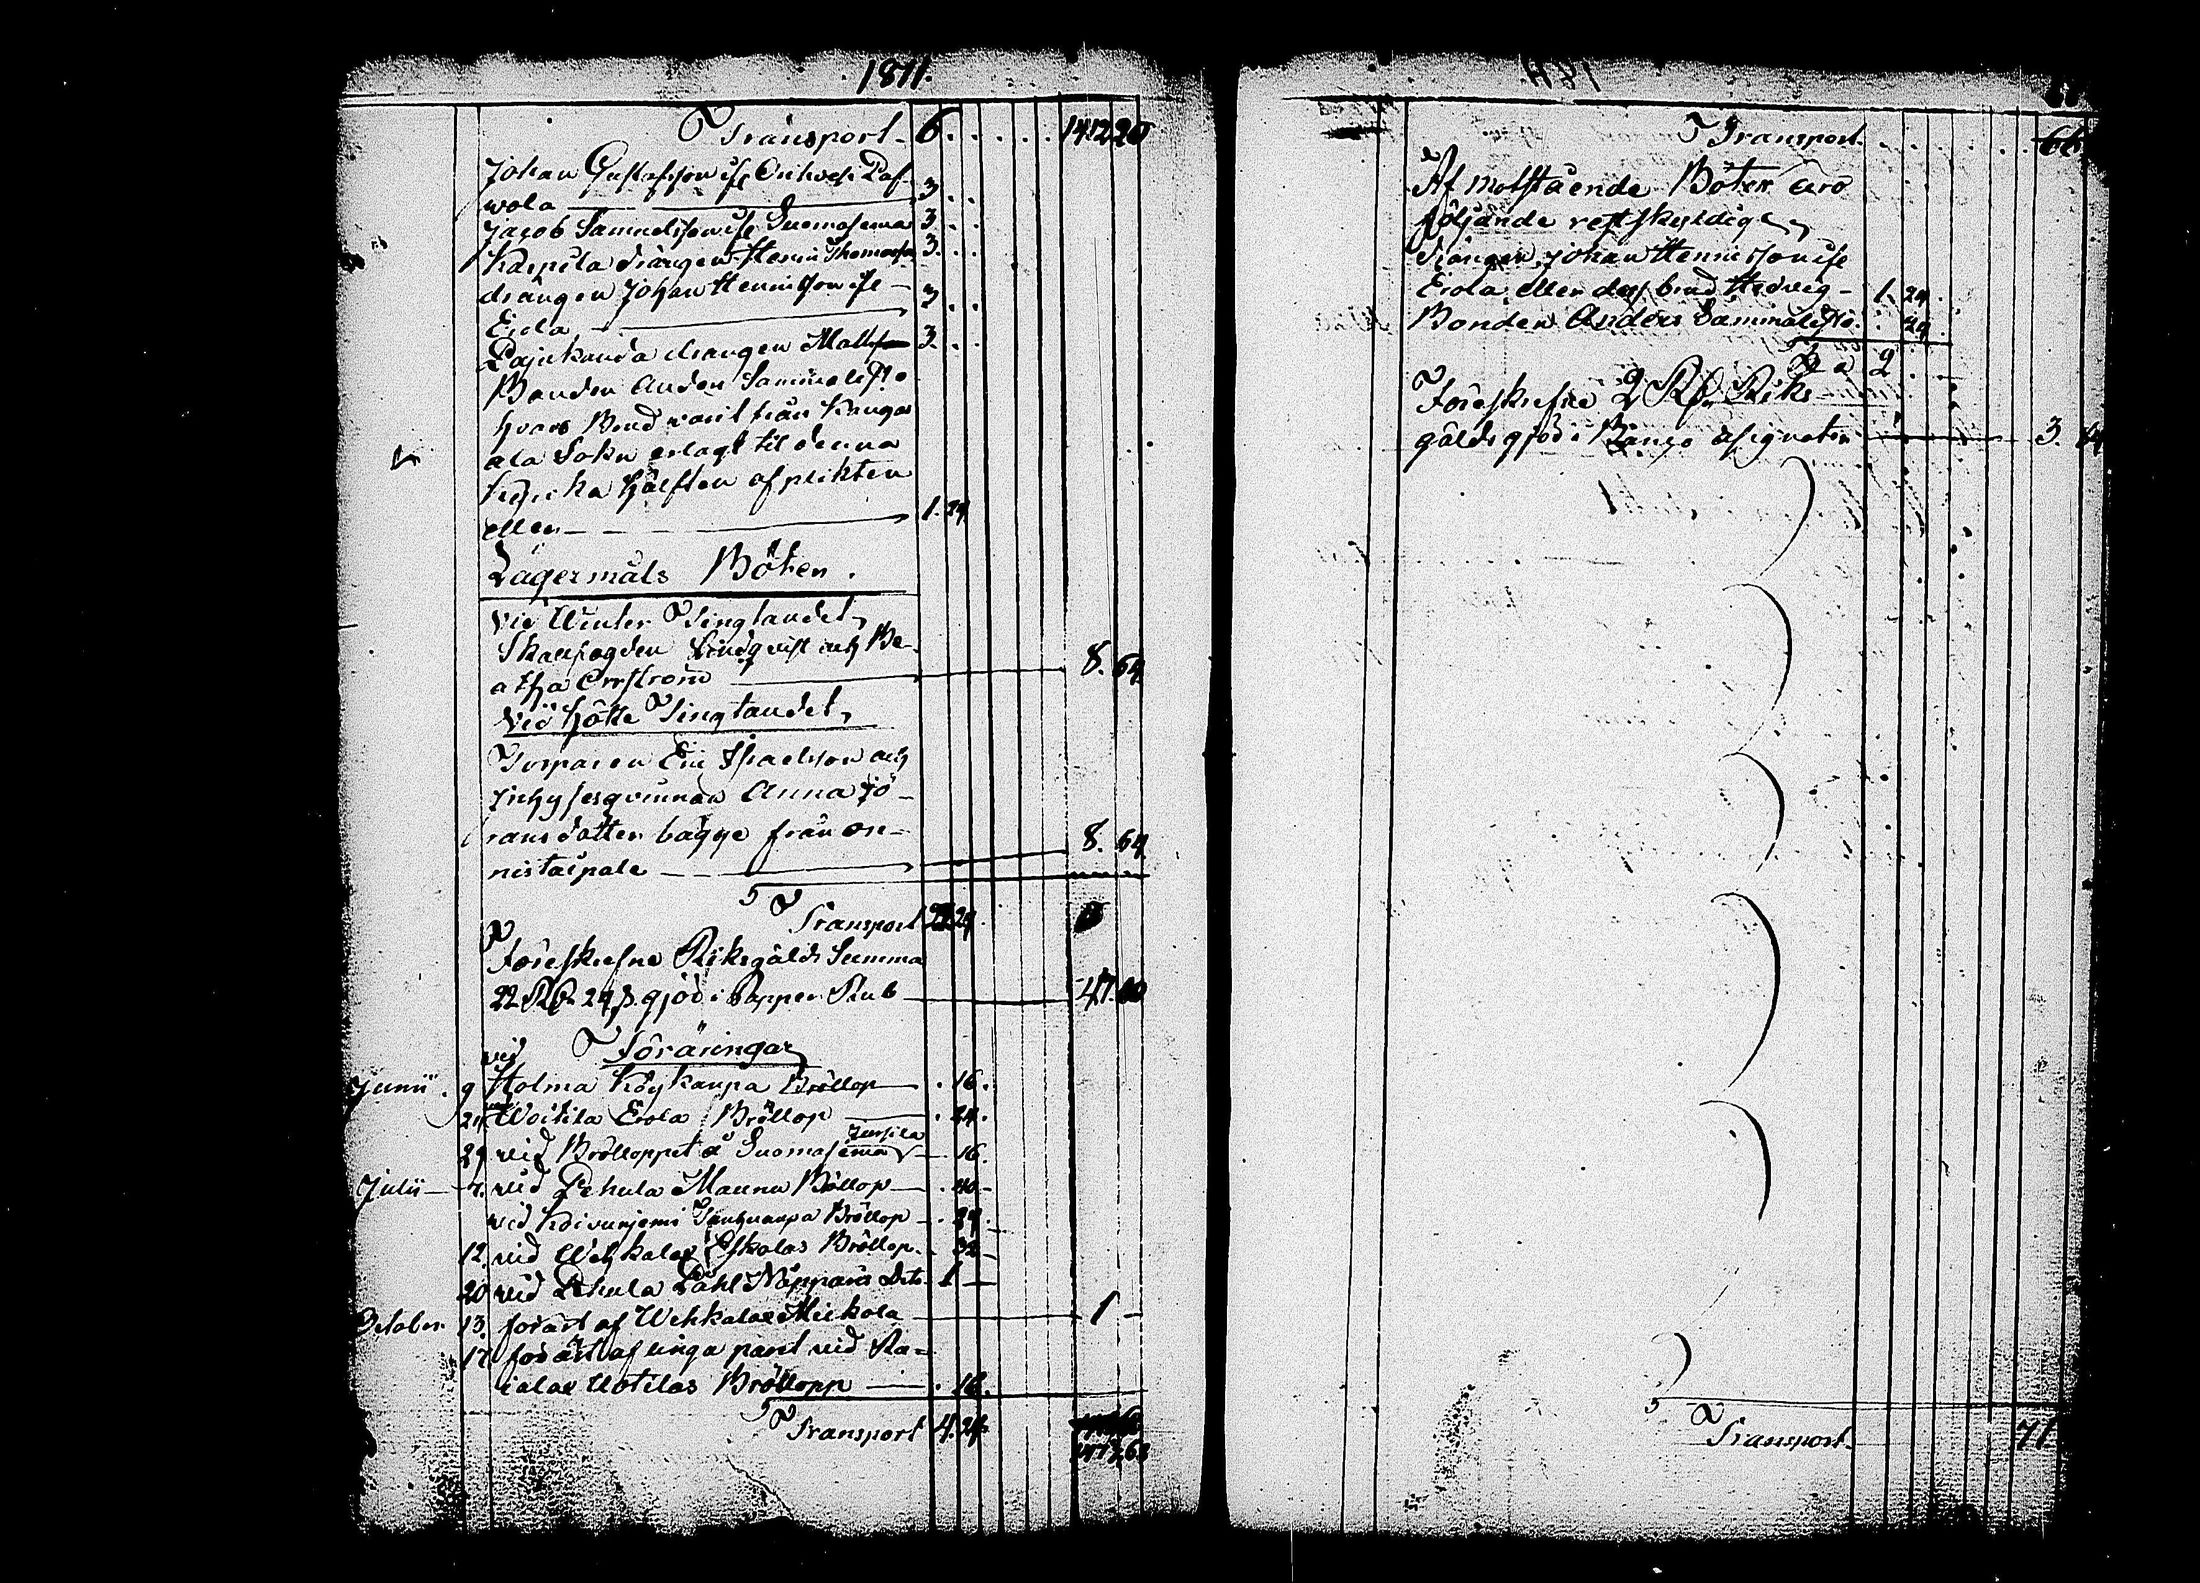 1811.
Transport 6. 1412 20
Johan Gustafsson
wola 3.
Jacob Samuelsson Suomasema 3.
Karpila drängen Henric Thomasson 3.
drängen Johan Henricsson
Erola 3.
Pajukanda drängen Matts 3.
Bonden Anders
hvars Brud varit från Kangas
ala Sokn erlagt til denna
kyrcka hälften af plikten
eller 1. 24
Lägermåls Böter.
Vid Winter Tingtaudet
Skallfogden Lindqvist och Be-
atha 8. 64
Vid Höste Tingtaudet
Torparen Eric Isacsson och
Inhyseqvinnan Anna Jö-
ransdotter bägge från
nistaipale 8. 64
Transport 22 24
Föreskrefne Riksgälds Summa
22 Rd 24 s. gjöd i Papper Rub 47. 60
vid Föräringar
Junii 9 Holma Bröllop 16.
24 Woitila Erola Bröllop 24.
Jussila
29 vid Bröllopet å Suomasema 16.
Julii 7. vid Pehula Maunu Bröllop 40
vid Bröllop 24
12. vid Wehkalax Eskolas Bröllop 32
20 vid Pehula Påhl Näppäris Dito 1
October 13. förärt af Wehkalax Mickola 1
17 förärt af unga paret vid Ra-
ialax Uotilas Bröllopp 16.
Transport 4. 24
1477. 68
Transport 66
Af motstående Böter äro
följande restskyldige
drängen Johan Henricsson
Erola eller dess brud Hedvig 1. 24
Bonden Anders 24
Sa 2
Föreskrefne 2 Rd Riks
gälds gjöd i Banco Assignater 3. 64
Transport 71